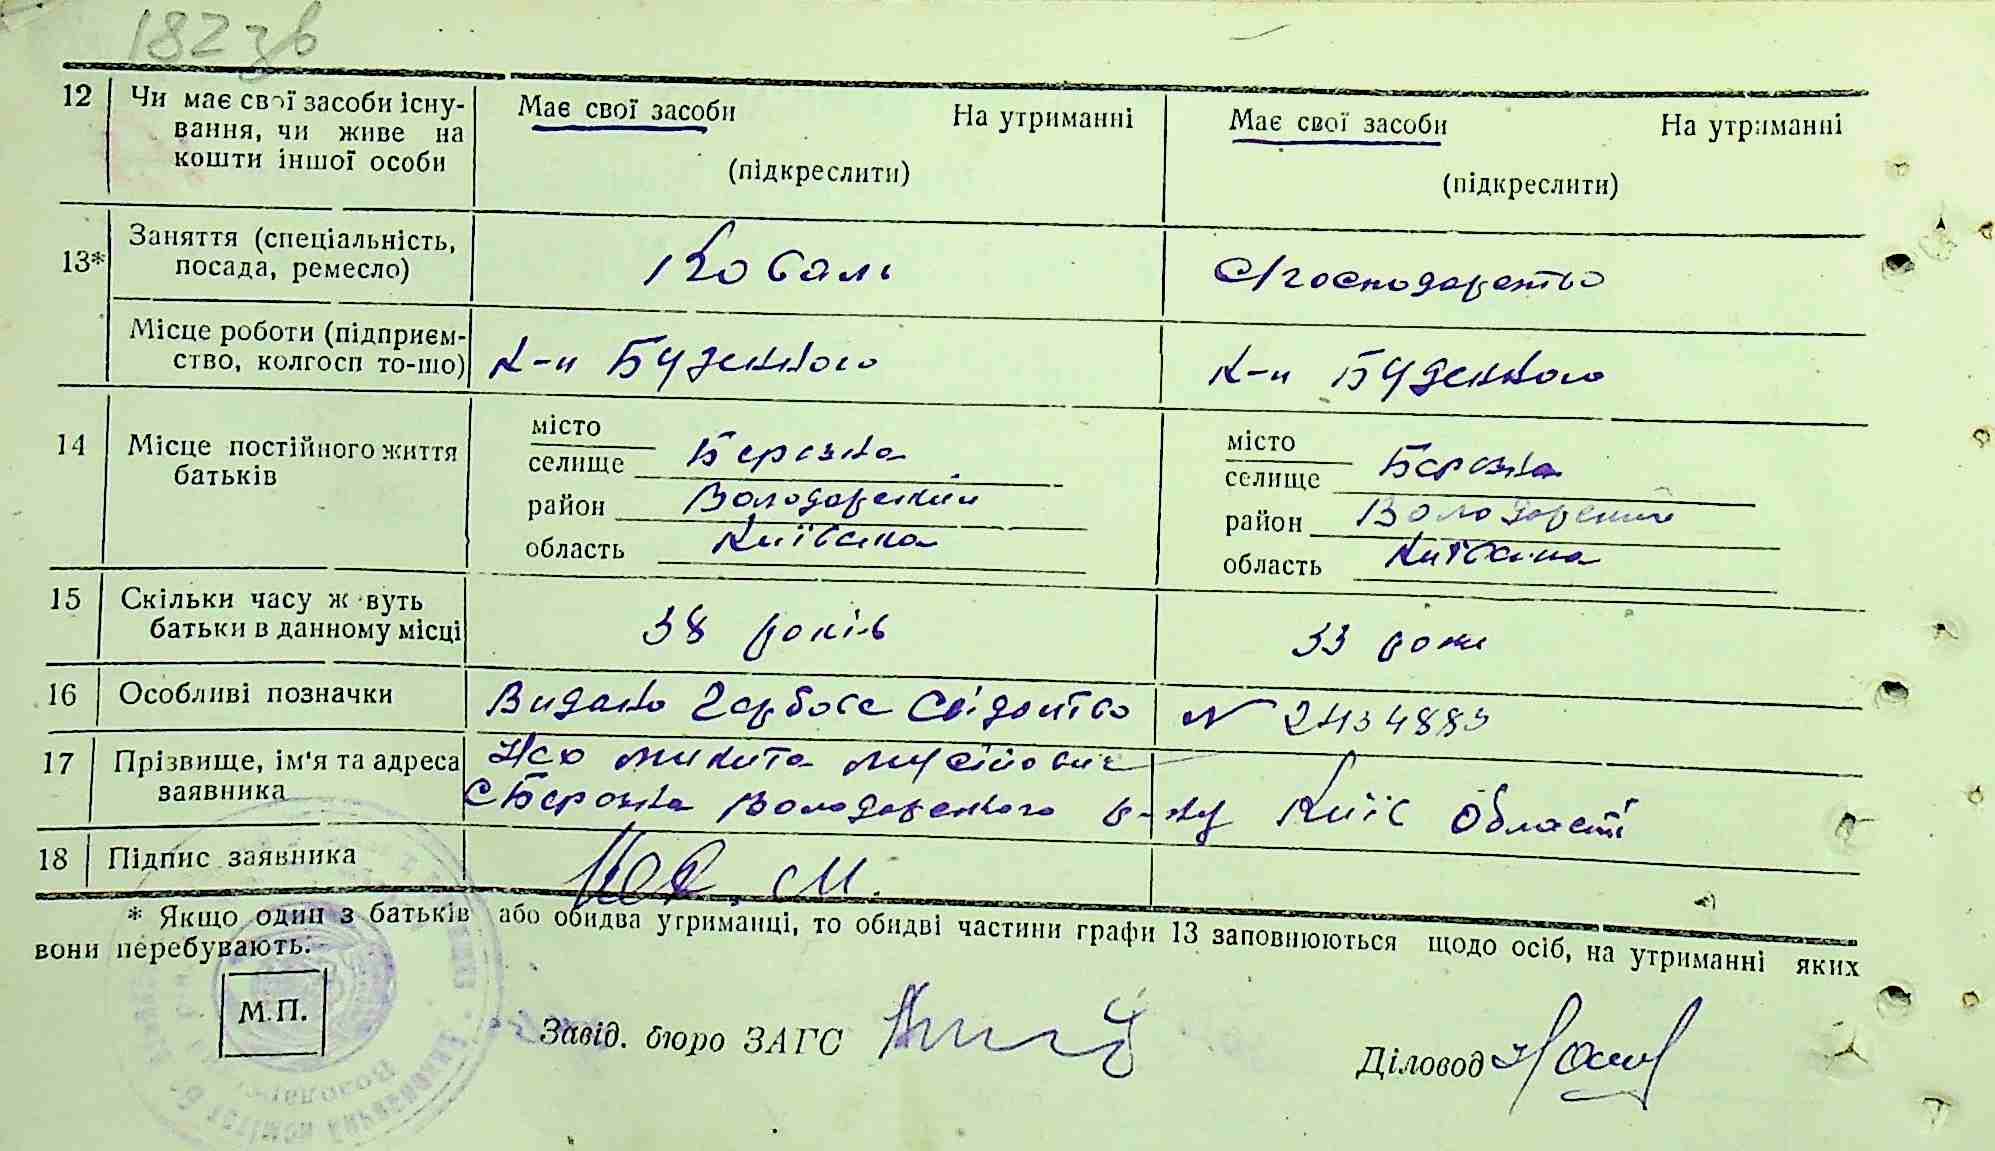 182 зв
12 Чи має свої засоби існу- Має свої засоби На утриманні Має свої засоби На утриманні
вання, чи живе на
кошти іншої особи (підкреслити) (підкреслити)
13* Заняття (спеціальність, Коваль С/господарство
посада, ремесло)
Місце роботи (підприєм- к-п Буденного к-п Буденного
ство, колгосп то-що)
14 Місце постійного життя місто місто
батьків селище Березна селище Березна
район Володарський район Володарський
область Київська область Київська
15 Скільки часу ж вуть 38 років 33 роки
батьки в данному місці
16 Особливі позначки Видано Гербове Свідоцтво N 2434885
17 Прізвище, ім'я та адреса Микита Мусійович
заявника с Березна Володарского р-ну Київ області
18 Підпис заявника
* Якщо один з батьків або обидва утриманці, то обидві частини графи 13 заповнюються щодо осіб, на утриманні яких
вони перебувають.
М.П.
Завід. бюро ЗАГС
Діловод